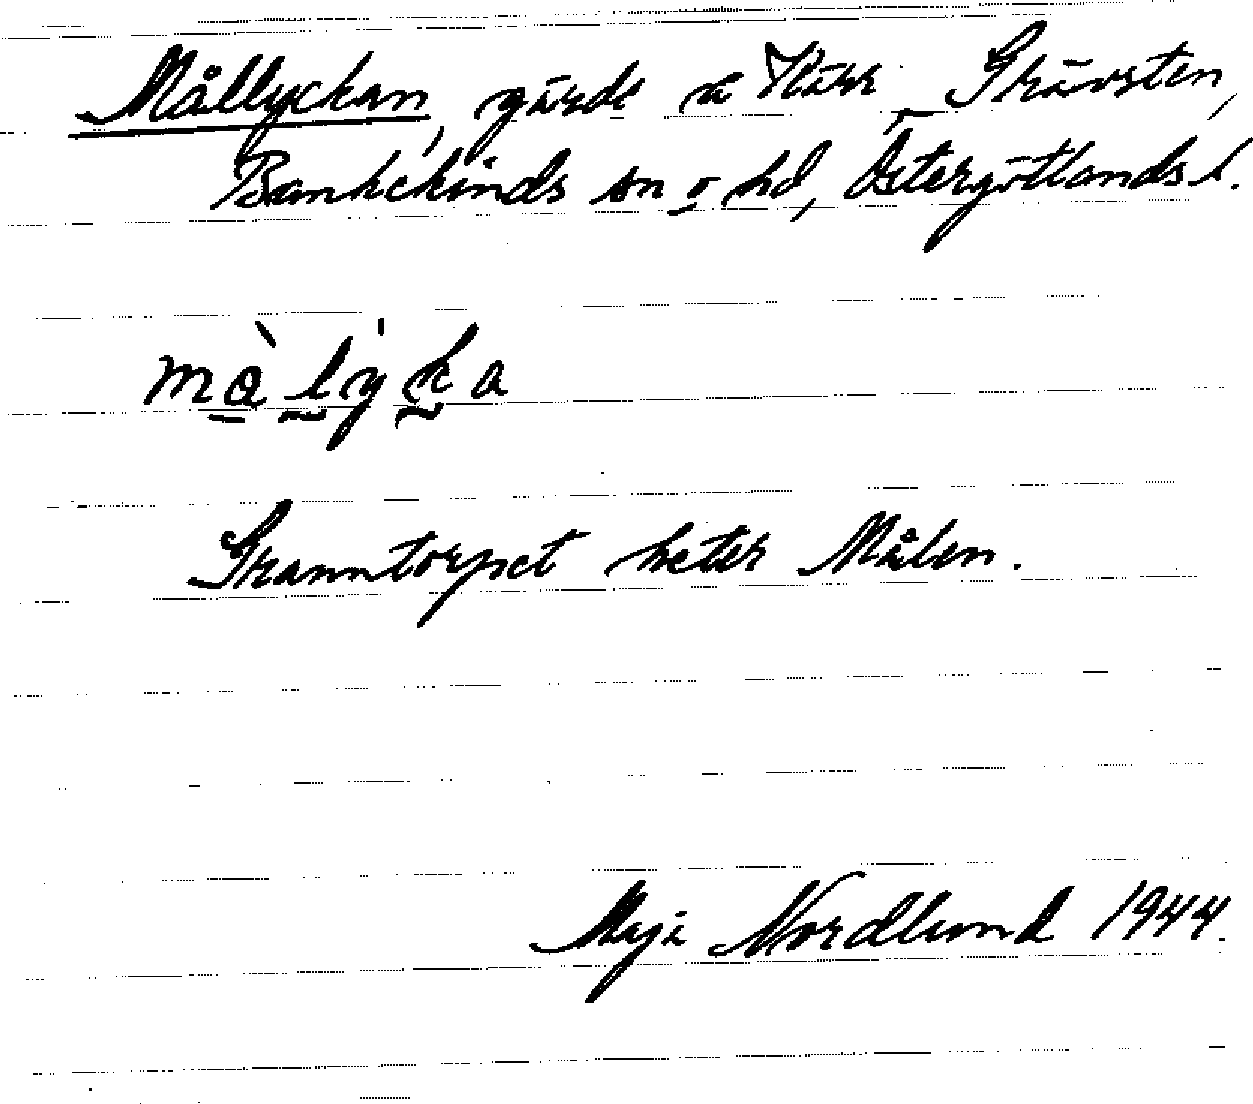 Mållyckan, gärde å Kärr Grävsten,
Bankekinds sn o hd, Östergötlands l.
màlýka
Granntorpet heter Målen.
Maja Nordlund 1944.